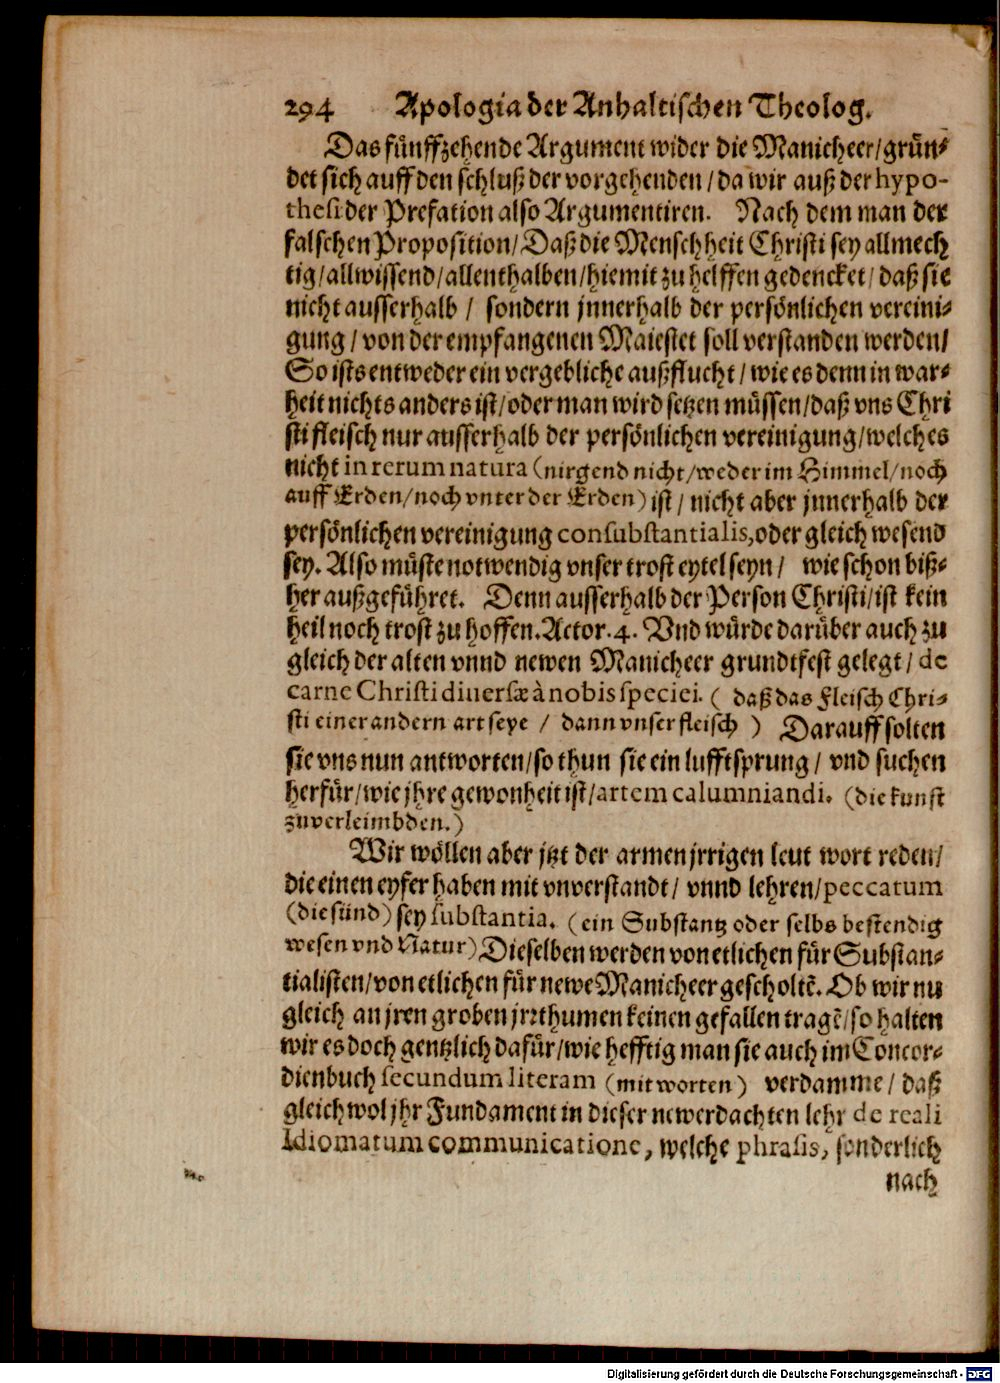 294 Apologia der Anhaltischen Theolog.
Das fünffzehende Argument wider die Manicheer/grün⸗
det sich auff den schluß der vorgehenden/da wir auß der hypo-
thesi der Prefation also Argumentiren. Nach dem man der
falschen Proposition/Daß die Menschheit Christi sey allmech
tig/allwissend/allenthalben/hiemit zu helffen gedencket/daß sie
nicht ausserhalb / sondern jnnerhalb der persönlichen vereini⸗
gung/von der empfangenen Maiestet soll verstanden werden/
So ists entweder ein vergebliche außflucht/wie es denn in war⸗
heit nichts anders ist/oder man wird setzen müssen/daß vns Chri
sti fleisch nur ausserhalb der persönlichen vereinigung/welches
nicht in rerum natura (nirgend nicht/weder im Himmel/noch
auff Erden/noch vnter der Erden) ist/nicht aber jnnerhalb der
persönlichen vereinigung consubstantialis, oder gleich wesend
sey. Also müste notwendig vnser trost eytel seyn/ wie schon biß⸗
her außgeführet. Denn ausserhalb der Person Christi/ist kein
heil noch trost zu hoffen. Actor. 4. Vnd würde darüber auch zu
gleich der alten vnnd newen Manicheer grundtfest gelegt/de
carne Christi diuersæ à nobis speciei. ( daß das Fleisch Chri⸗
sti einer andern art seye / dann vnser fleisch ) Darauff solten
sie vns nun antworten/so thun sie ein lufftsprung/ vnd suchen
herfür/wie jhre gewonheit ist/artem calumniandi. (die kunst
zuverleimbden.)
Wir wöllen aber jtzt der armen jrrigen leut wort reden/
die einen eyfer haben mit vnverstandt/ vnnd lehren/peccatum
(die sünd) sey substantia. (ein Substantz oder selbs bestendig
wesen vnd Natur) Dieselben werden von etlichen für Substan⸗
tialisten/von etlichen für newe Manicheer gescholtē. Ob wir nu
gleich an jren groben jrrthumen keinen gefallen tragē/so halten
wir es doch gentzlich dafür/wie hefftig man sie auch im Concor⸗
dienbuch secundum literam (mit worten) verdamme/daß
gleichwol jhr Fundament in dieser newerdachten lehr de reali
Idiomatum communicatione, welche phrasis, sonderlich
nach
Digitalisierung gefördert durch die Deutsche Forschungsgemeinschaft - DFG